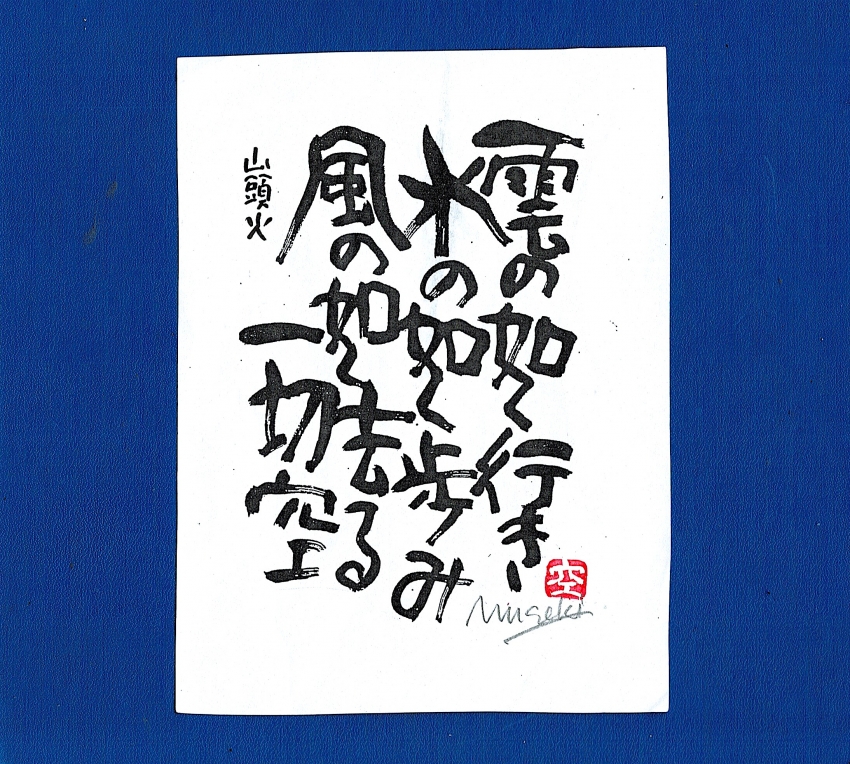 雲の如く行き
水の如く歩み
風の如く去る
一切空
山頭火
空